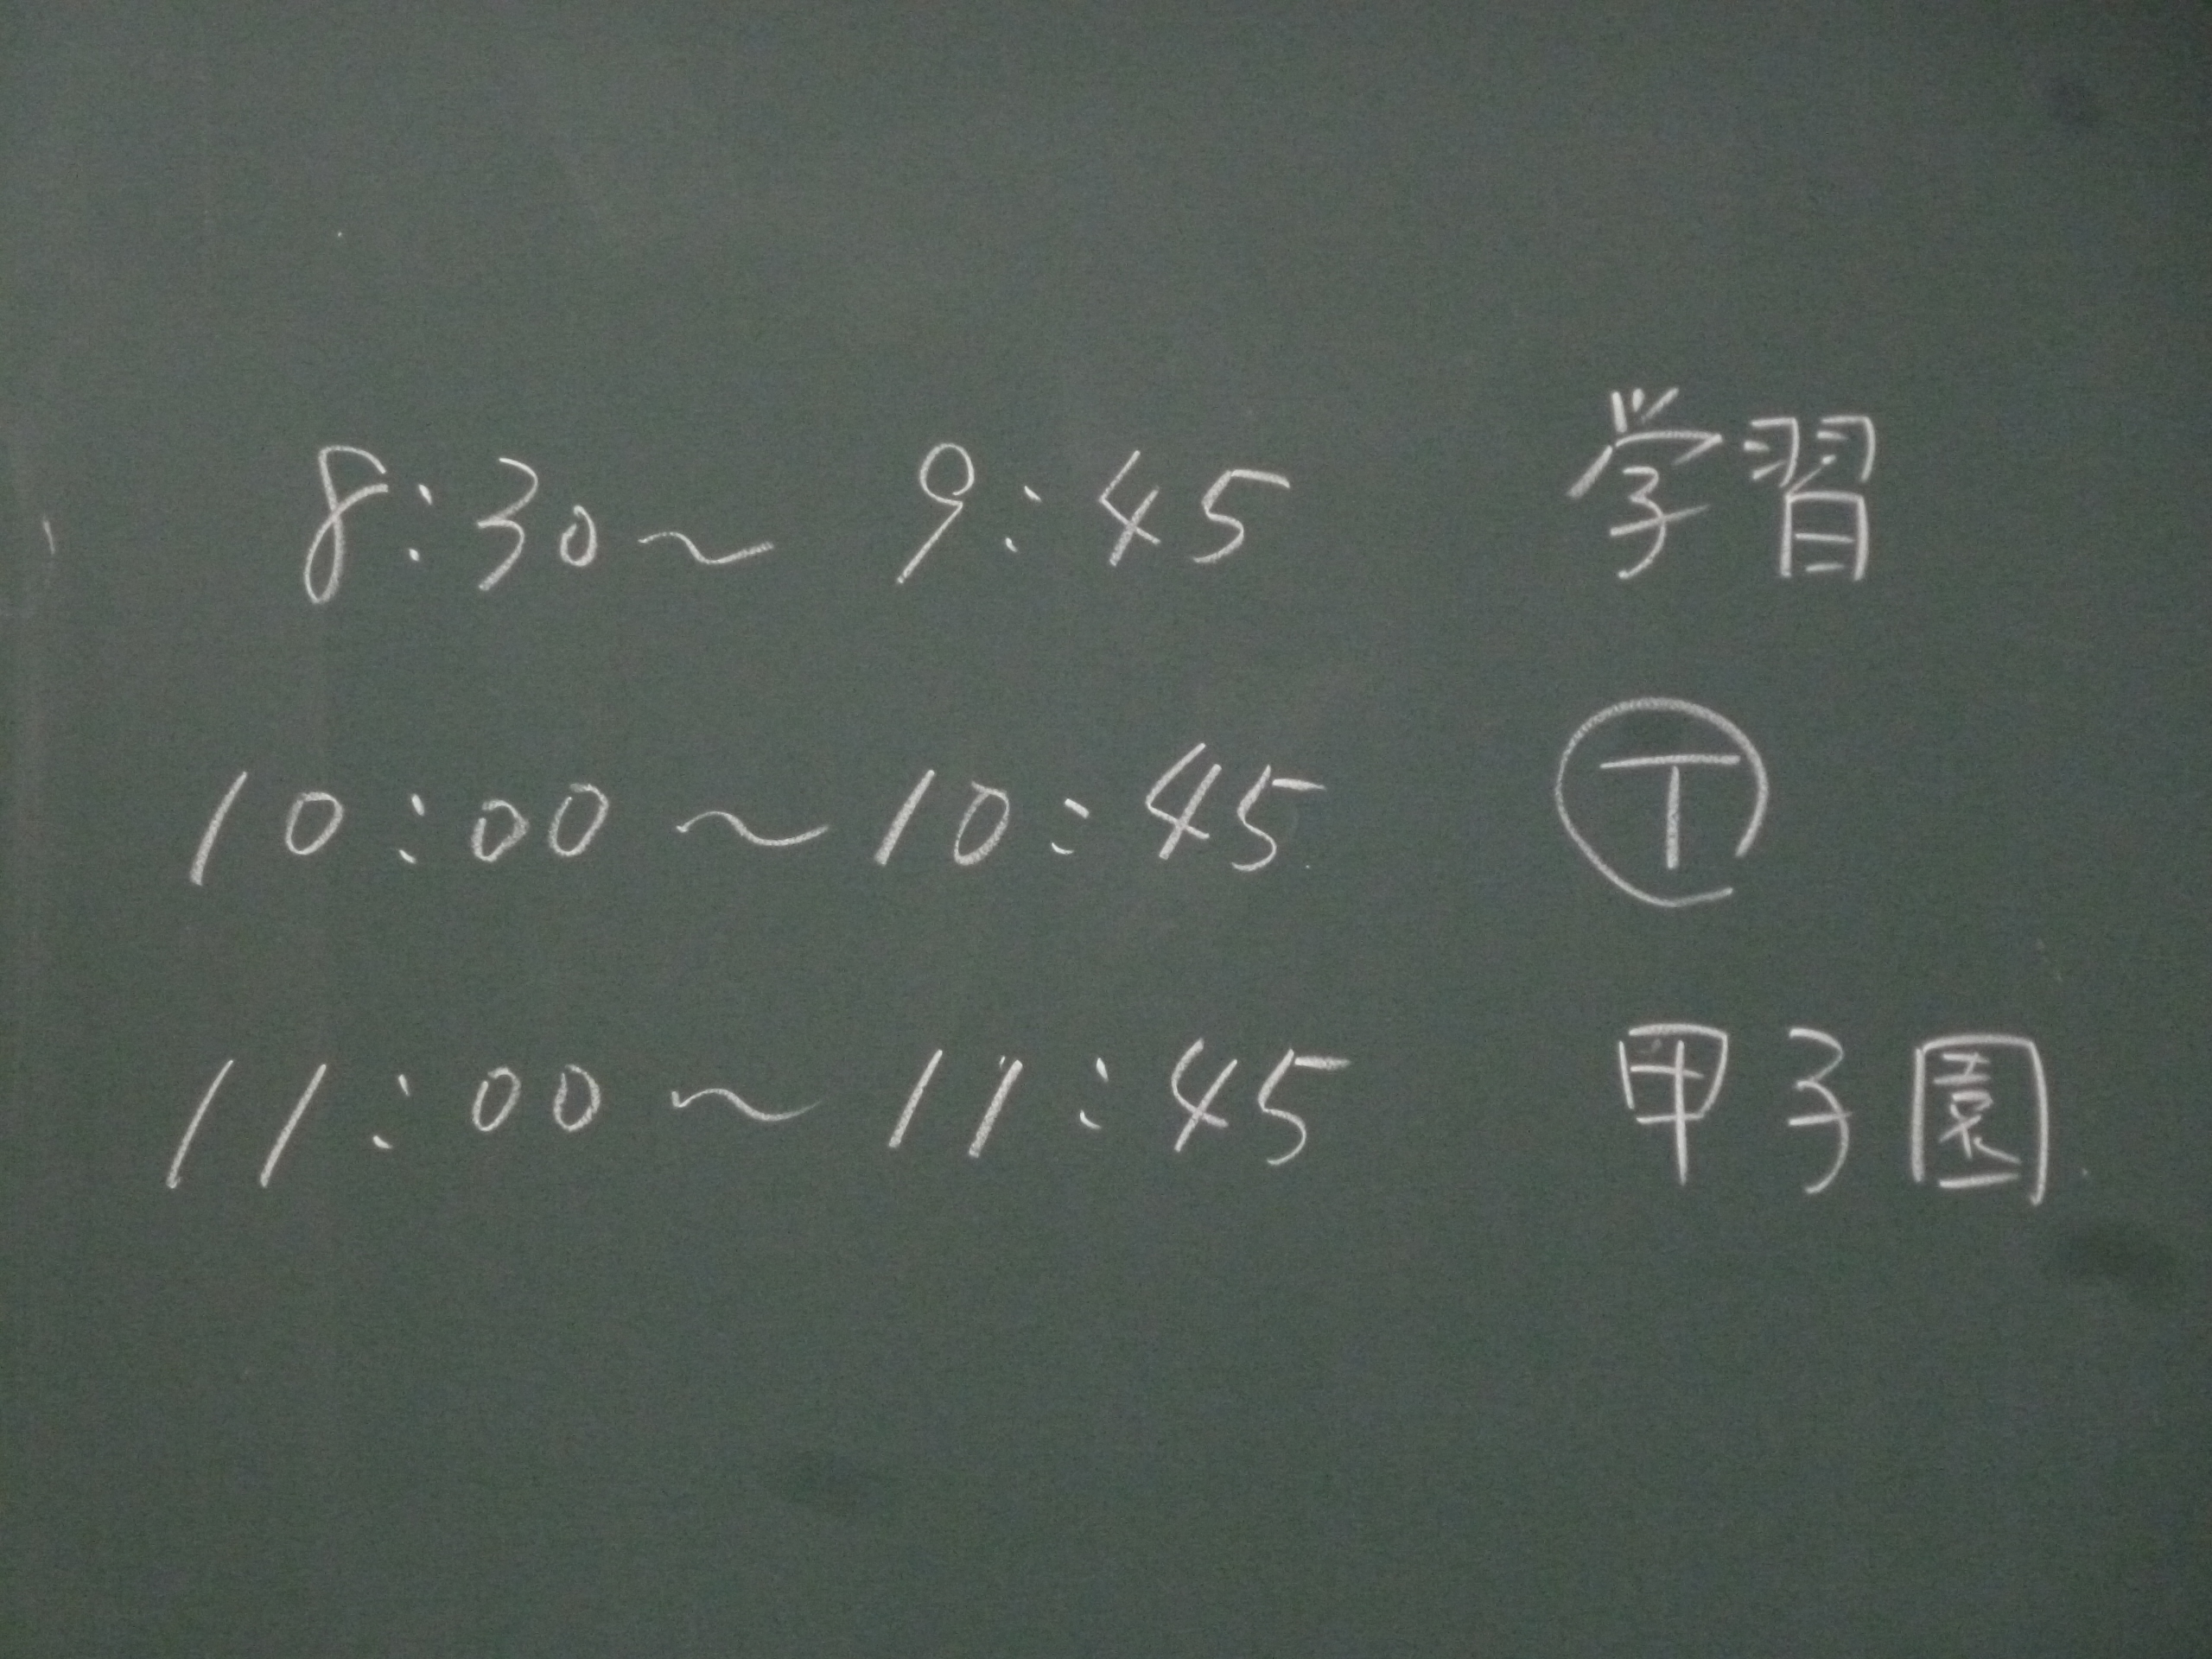 8:30～9:45 学習
10:00～10:45 Ⓣ
11:00～11:45 甲子園